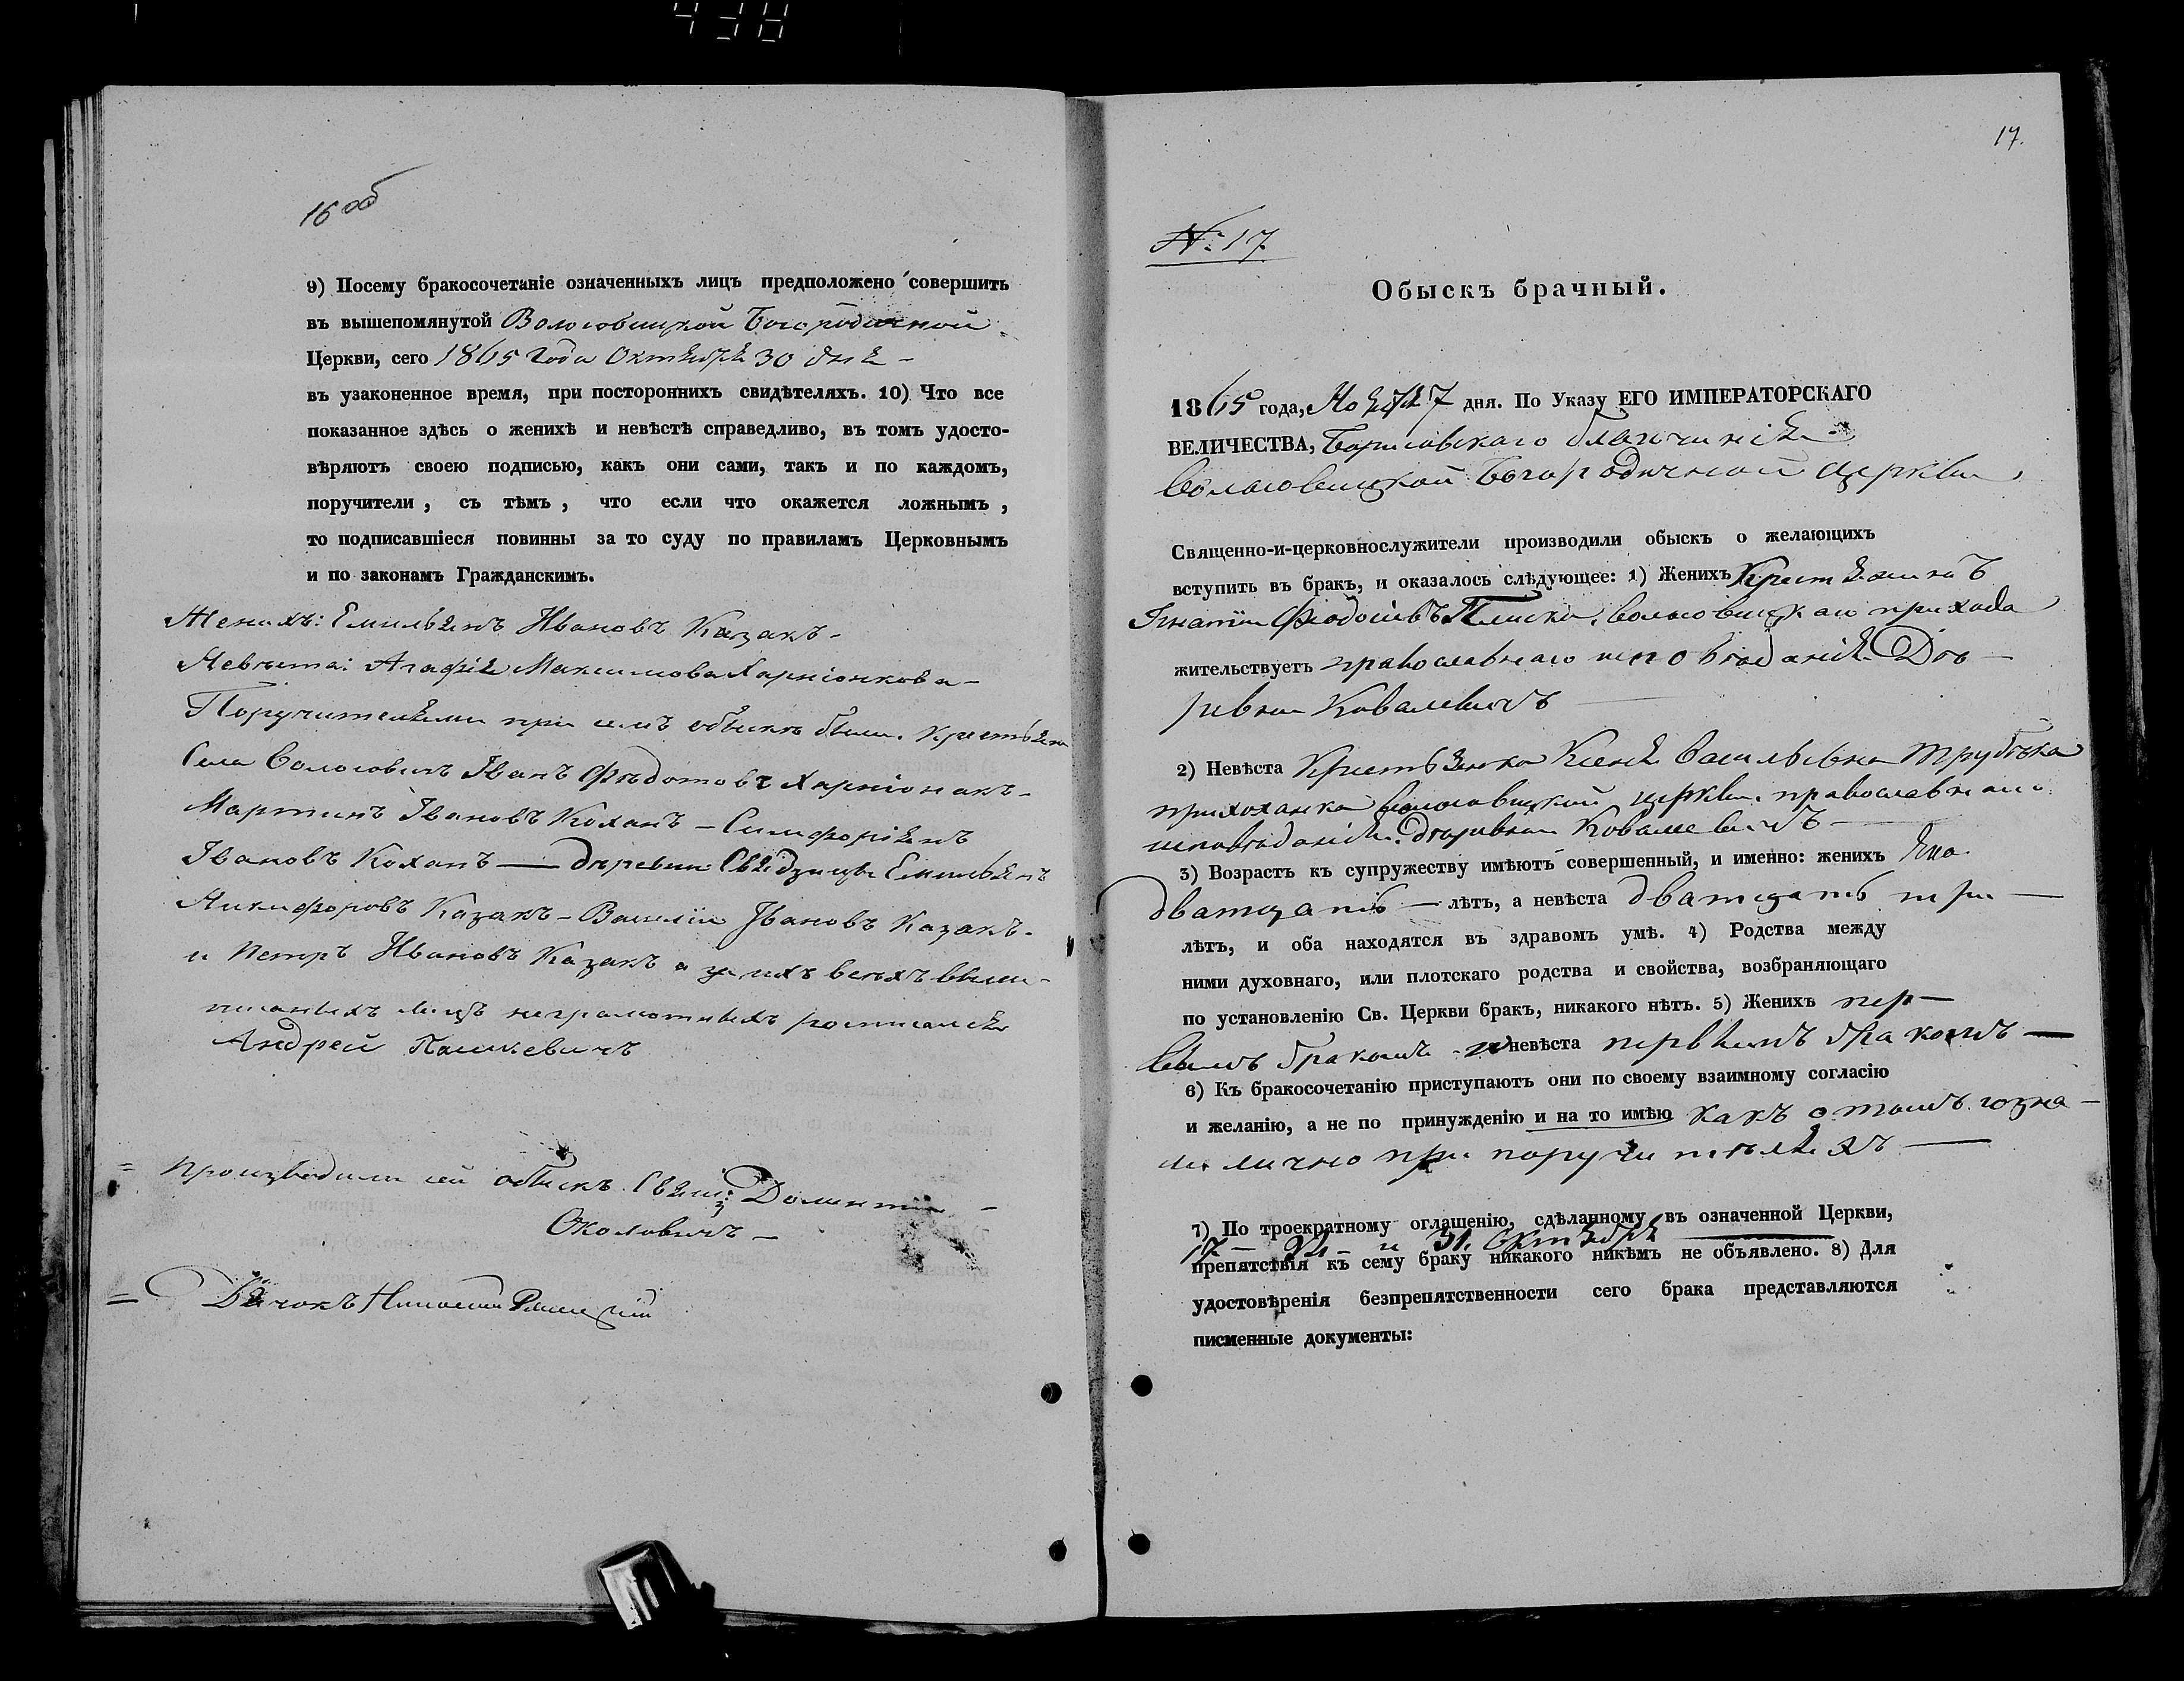 438
16 об
9) Посему бракосочетаніе означенныхъ лицъ предположено совершить
въ вышепомянутой Волосовицкой Богородичной
Церкви, сего 1865 года Октября 30 дня –
въ узаконенное время, при постороннихъ свидѣтеляхъ. 10) Что все
показанное здѣсь о женихѣ и невѣстѣ справедливо, въ томъ удосто-
вѣряютъ своею подписью, какъ они сами, такъ и по каждомъ,
поручители, съ тѣмъ, что если что окажется ложнымъ,
то подписавшіеся повинны за то суду по правиламъ Церковнымъ
и по законамъ Гражданскимъ.
Женихъ: Емильянъ Ивановъ Казакъ –
Невѣста: Агафія Максимова Харніонкова –
Поручителями при семъ обыскѣ были. Крестьяне
Села Волосовичъ Іванъ Ѳѣдотовъ Харніонакъ –
Мартинъ Івановъ Коханъ – Симфоріянъ
Івановъ Коханъ — дѣревни Свядзицы Емильянъ
Никифоровъ Казакъ – Василій Івановъ Казакъ –
и Петръ Ивановъ Казакъ а за ихъ всѣхъ выше-
писаныхъ лицъ неграмотныхъ росписался
Андрей Пашкевичъ
= Производили сей обыскъ. Свящ: Доментій –
Околовичъ –
= Дьячокъ
17.
№: 17
Обыскъ брачный.
1865 года, Ноября 7 дня. По Указу ЕГО ИМПЕРАТОРСКАГО
ВЕЛИЧЕСТВА, Борисовскаго благочинія
Волосовицкой Богородичной церкви
Священно-и-церковнослужители производили обыскъ о желающихъ
вступить въ бракъ, и оказалось слѣдующее: 1) Женихъ Крестьянинъ
Ігнатій Ѳіодосіевъ Плиско, Волосовицкаго прихода
жительствуетъ православнаго исповѣданія Дѣ-
ревни Ковалевичъ
2) Невѣста Крестьянка Ксенія Васильевна Трубѣка
прихожанка Волосовицкой церкви. православнаго
исповѣданія. дѣревни Ковалевичъ —
3) Возрастъ къ супружеству имѣютъ совершенный, и именно: женихъ
дватцать — лѣтъ, а невѣста дватцать три —
лѣтъ, и оба находятся въ здравомъ умѣ. 4) Родства между
ними духовнаго, или плотскаго родства и свойства, возбраняющаго
по установленію Св. Церкви бракъ, никакого нѣтъ. 5) Женихъ пер-
вымъ бракомъ – и невѣста первымъ бракомъ —
6) Къ бракосочетанію приступаютъ они по своему взаимному согласію
и желанію, а не по принужденію и на то имѣю какъ о томъ созна-
ли лично при поручителяхъ —
7) По троекратному оглашенію, сдѣланному въ означенной Церкви,
17 – 24 – и 31. Октября
препятствія къ сему браку никакого никѣмъ не объявлено. 8) Для
удостовѣренія безпрепятственности сего брака представляются
писменные документы: